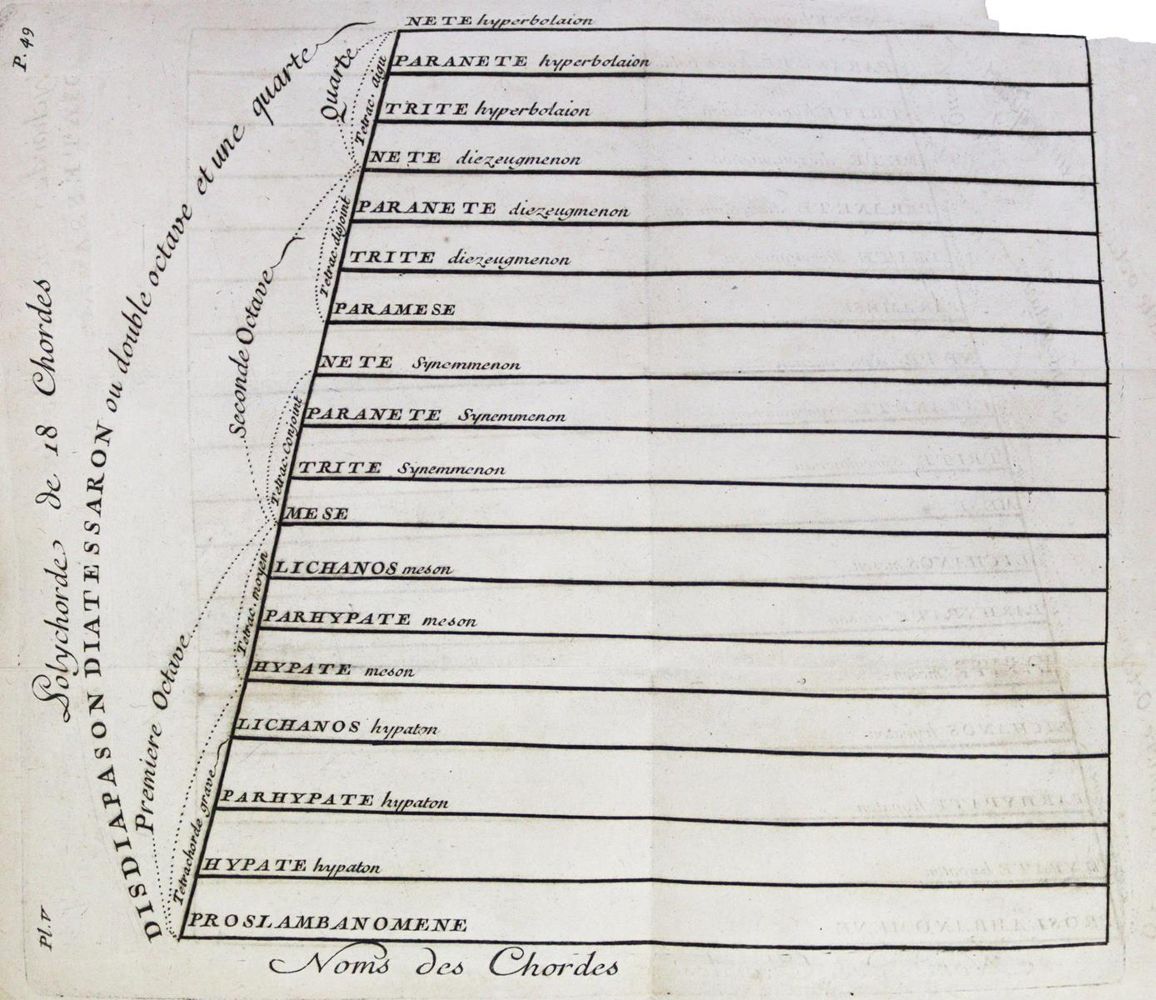 P. 49
Polychorde de 18 Chordes
DISDIAPASON DIATESSARON ou double octave et une quarte
Quarte
Seconde Octave
Premiere Octave
NETE hyperbolaion
PARANETE hyperbolaion
TRITE hyperbolaion
Tetrac. aigu
NETE diezeugmenon
PARANETE diezeugmenon
TRITE diezeugmenon
Tetrac. disjoint
PARAMESE
NETE Synemmenon
PARANETE Synemmenon
TRITE Synemmenon
Tetrac. conjoint
MESE
LICHANOS meson
PARHYPATE meson
Tetrac. moyen
HYPATE meson
LICHANOS hypaton
PARHYPATE hypaton
Tetrachorde grave
HYPATE hypaton
PROSLAMBANOMENE
Pl. V
Noms des Chordes